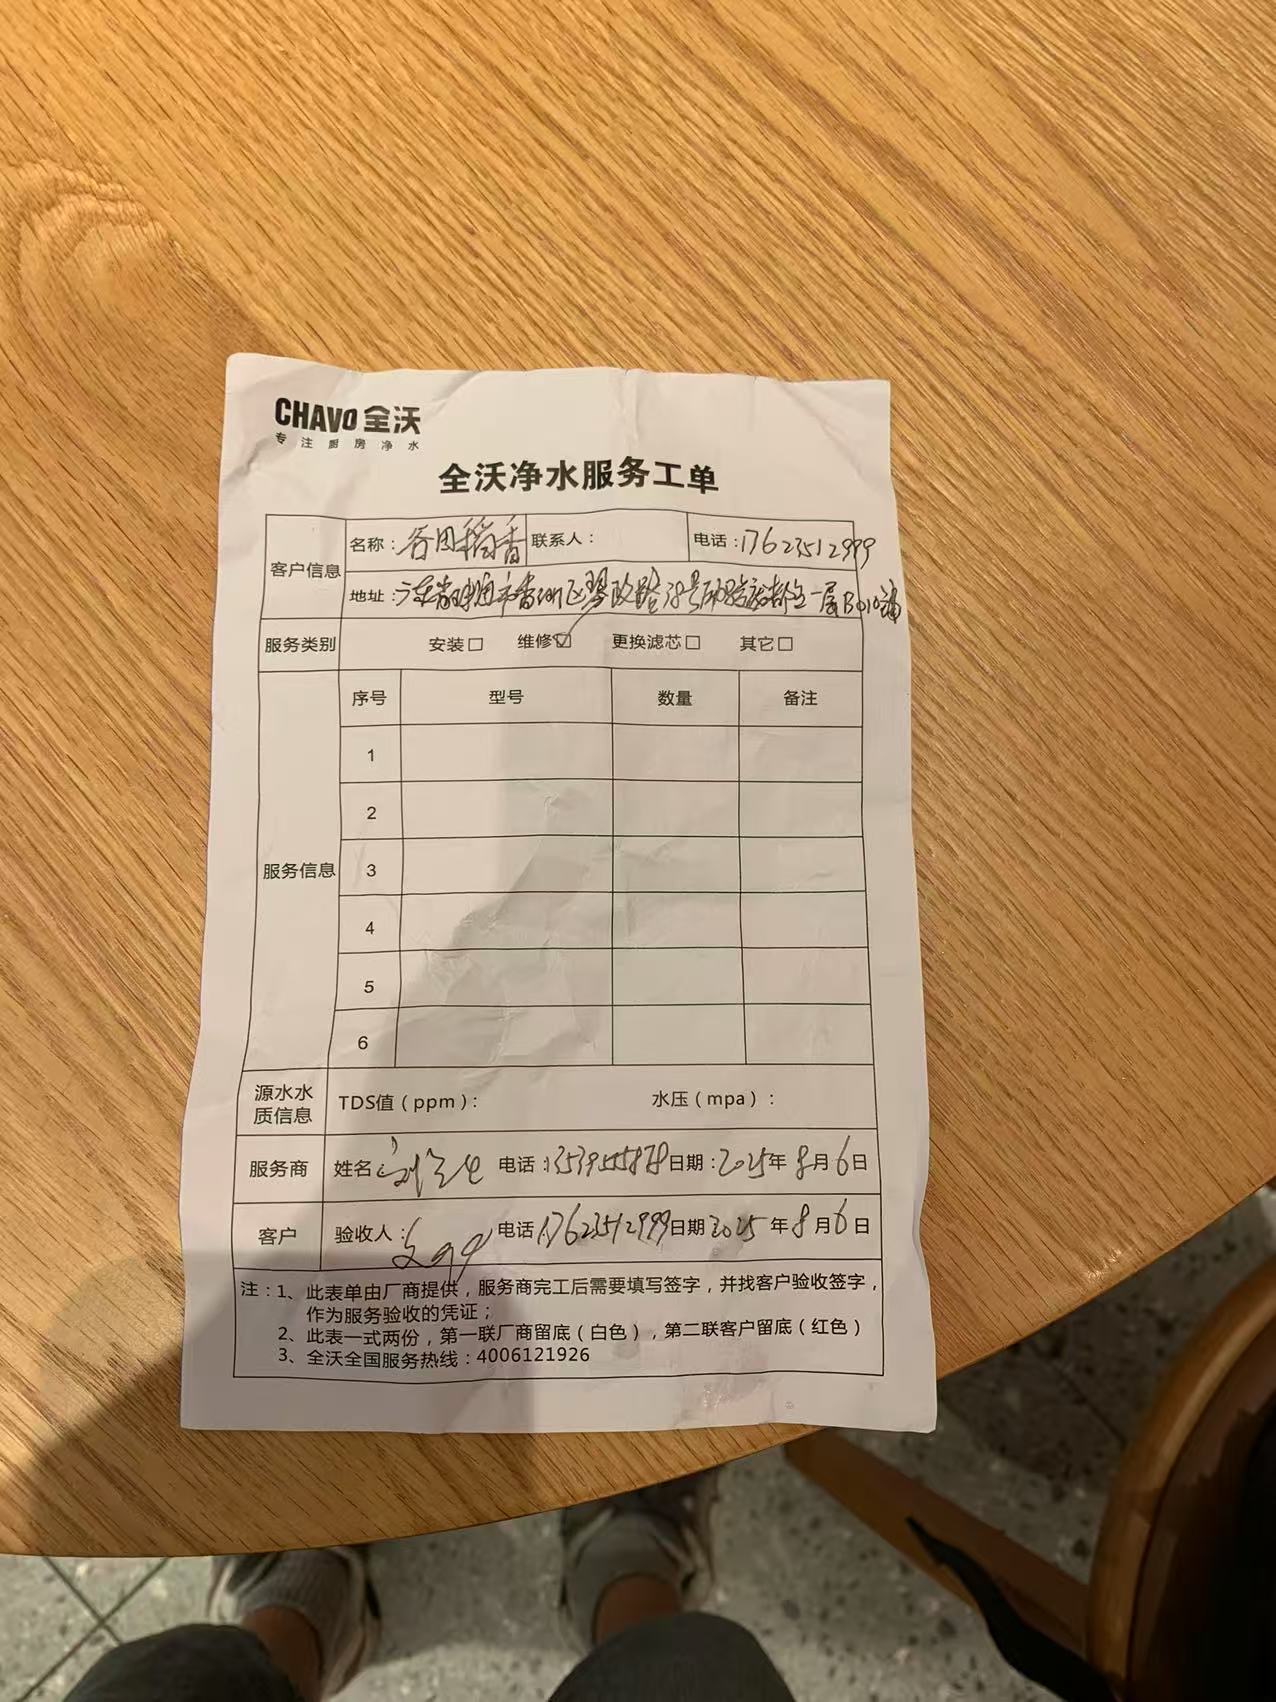 CHAVO 全沃
专注厨房净水
全沃净水服务工单
客户信息 名称：谷田稻香 联系人： 电话：17623512999
地址：广东省珠海市香洲区 路 号 一层B010铺
服务类别 安装□ 维修☑ 更换滤芯□ 其它□
服务信息 序号 型号 数量 备注
1
2
3
4
5
6
源水水质信息 TDS值（ppm）： 水压（mpa）：
服务商 姓名：刘 电话：13539555878 日期：2025年8月6日
客户 验收人： 电话：17623512999 日期 2025年8月6日
注：1、此表单由厂商提供，服务商完工后需要填写签字，并找客户验收签字，
作为服务验收的凭证；
2、此表一式两份，第一联厂商留底（白色），第二联客户留底（红色）
3、全沃全国服务热线：4006121926